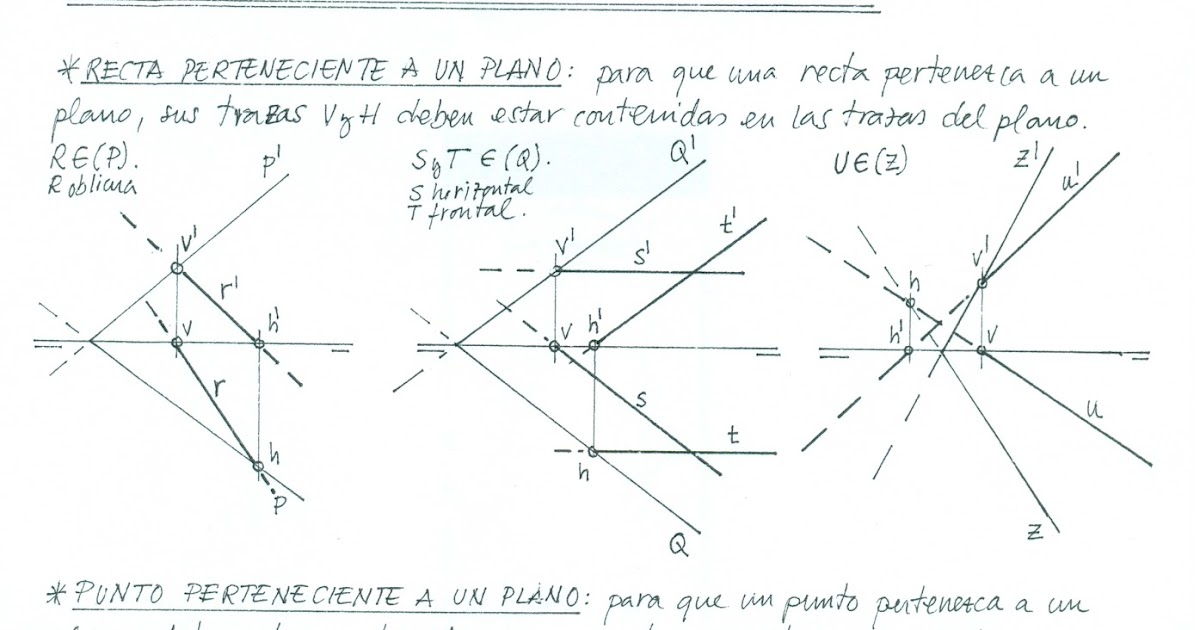 * RECTA PERTENECIENTE A UN PLANO: para que una recta pertenezca a un
plano, sus trazas V y H deben estar contenidas en las trazas del plano.
R∈(P).
R oblicua
P'
V'
r'
V
h'
r
h
P
S y T ∈(Q).
S horizontal
T frontal.
Q'
V'
s'
t'
V
h'
s
t
h
Q
U∈(Z)
Z'
u'
V'
h
h'
V
u
Z
* PUNTO PERTENECIENTE A UN PLANO: para que un punto pertenezca a un